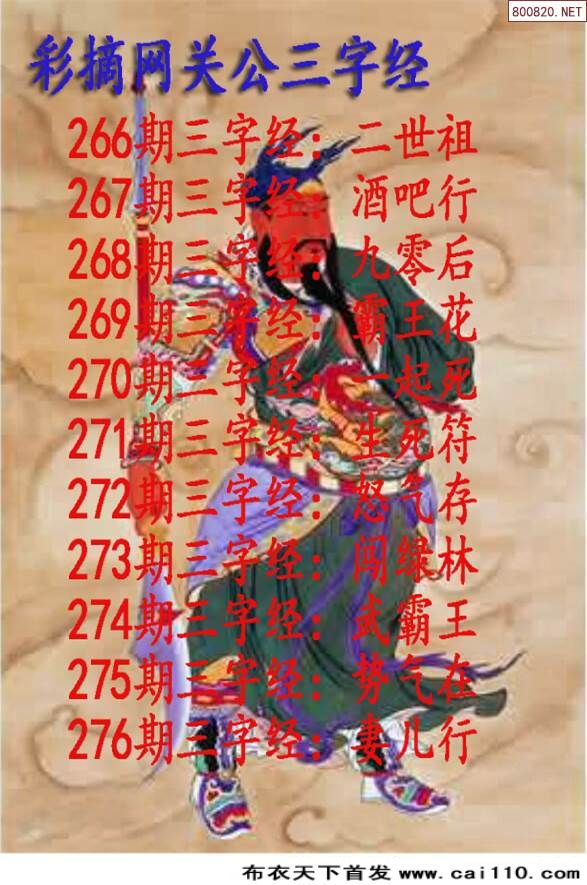 800820.NET
彩摘网关公三字经
266期三字经：二世祖
267期三字经：酒吧行
268期三字经：九零后
269期三字经：霸王花
270期三字经：一起死
271期三字经：生死符
272期三字经：怒气存
273期三字经：闯绿林
274期三字经：武霸王
275期三字经：势气在
276期三字经：妻儿行
布衣天下首发 www.cai110.com